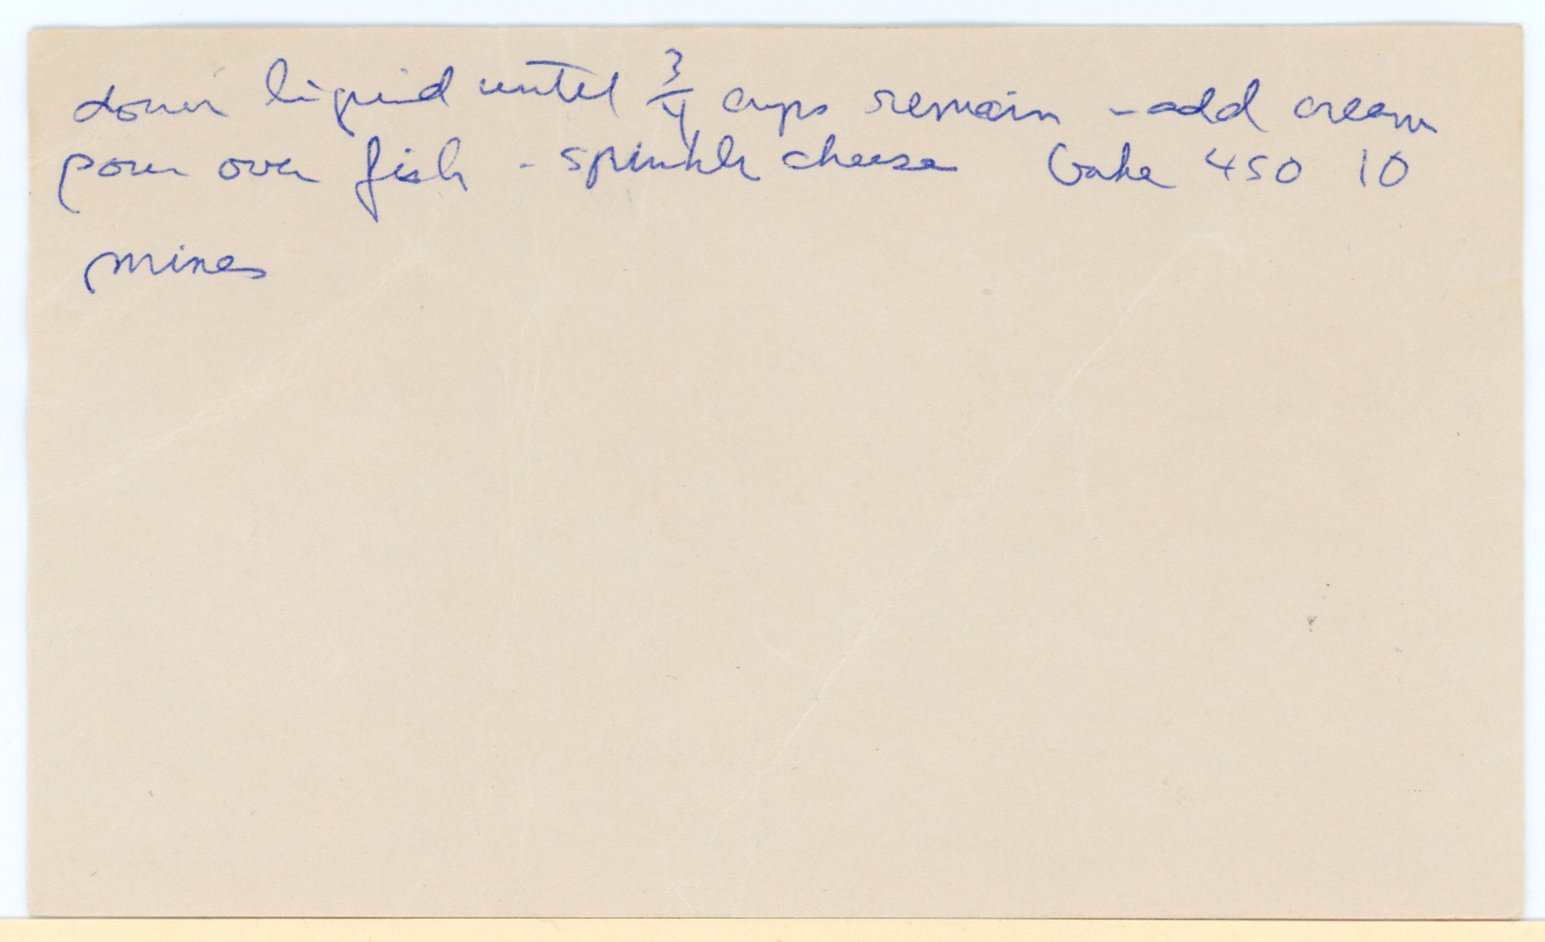 down liquid until 3/4 cups remain - add cream
pour over fish - sprinkle cheese bake 450 10
mines